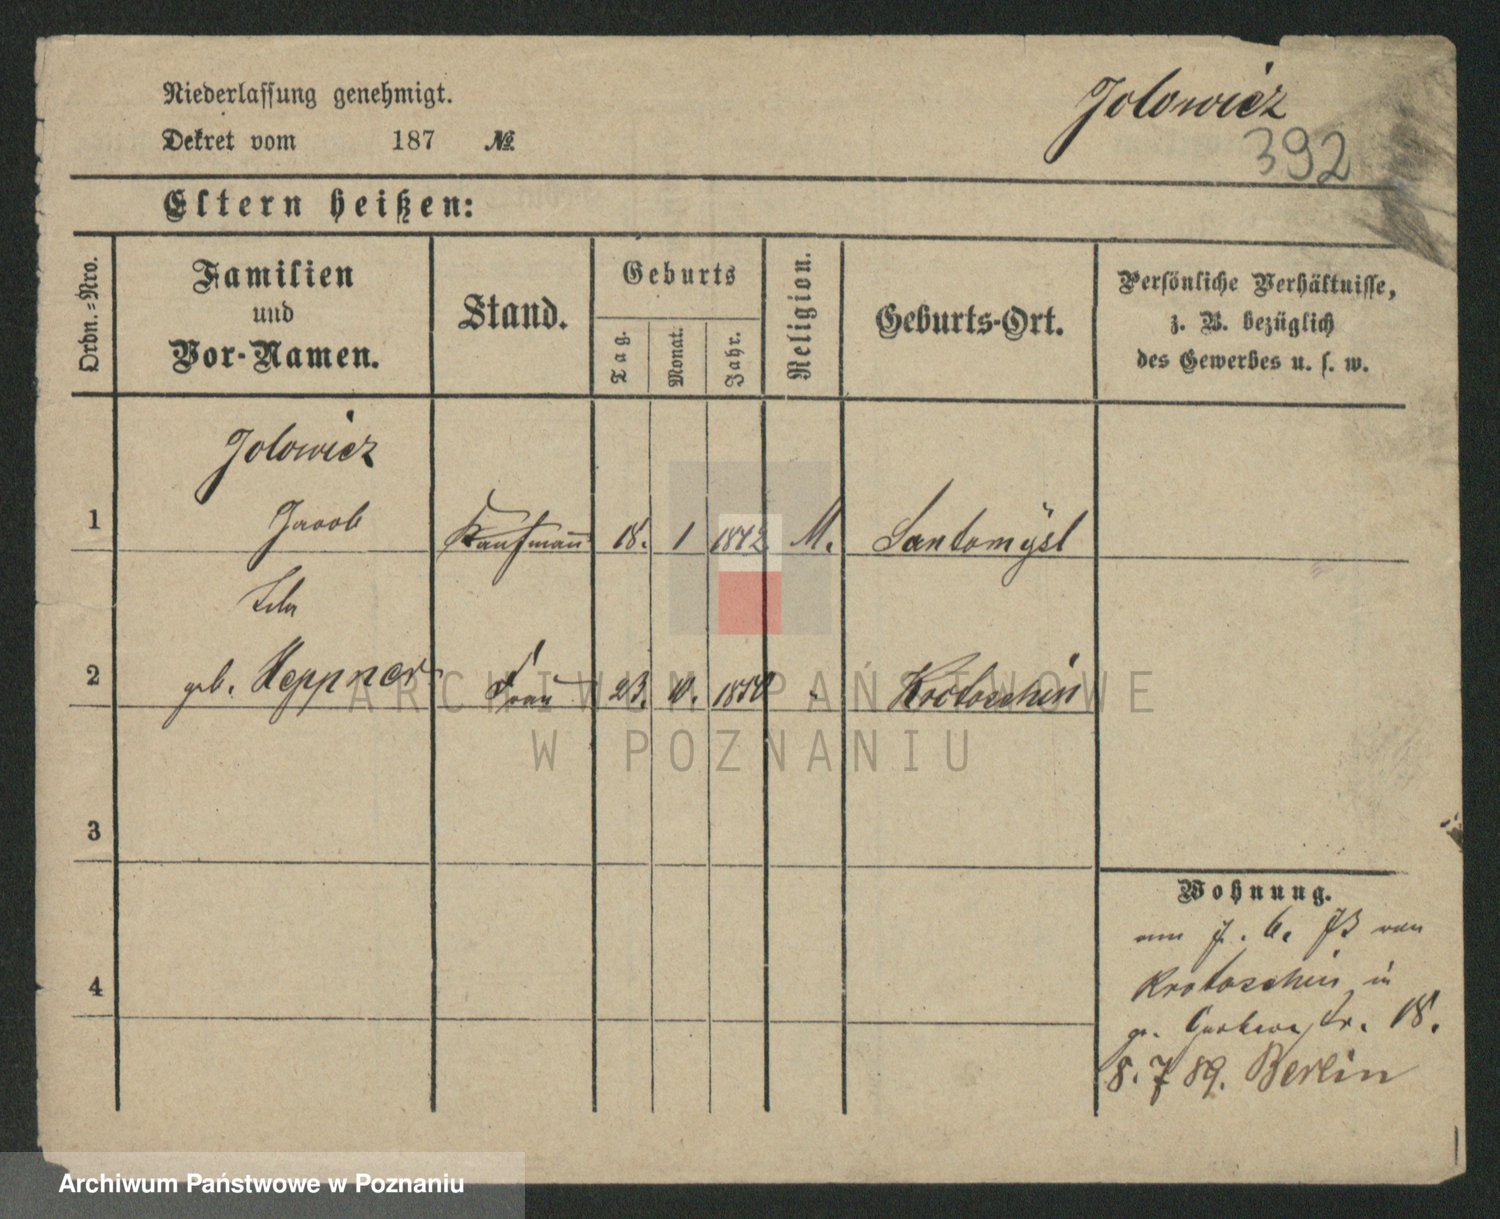 Niederlassung genehmigt.
Jolowicz
Dekret vom 187 №
392
Eltern heißen:
Ordn.-Nro.
Familien
und
Vor-Namen.
Stand.
Geburts
Tag.
Monat.
Jahr.
Religion.
Geburts-Ort.
Persönliche Verhältnisse,
z. B. bezüglich
des Gewerbes u. s. w.
Jolowicz
1 Jacob Kaufmann 18. 1 1842 M. Santomysl
2 geb. Heppner Frau 23. 10. Krotoschin
3
Wohnung.
von
4
Krotoschin in
18.
8. 7 89. Berlin
ARCHIWUM PAŃSTWOWE
W POZNANIU
Archiwum Państwowe w Poznaniu